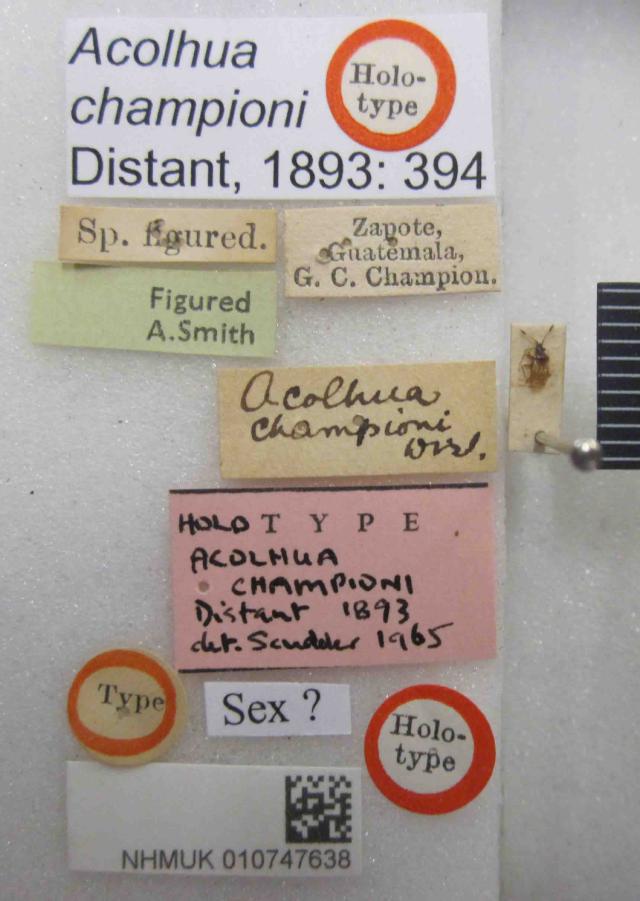 Acolhua
championi
Distant, 1893: 394
Holo-
type
Sp. figured.
Zapote,
Guatemala,
G. C. Champion.
Figured
A.Smith
Acolhua
championi
Dist.
HOLOTYPE
ACOLHUA
CHAMPIONI
Distant 1893
det. Scudder 1965
Type
Sex ?
Holo-
type
NHMUK 010747638